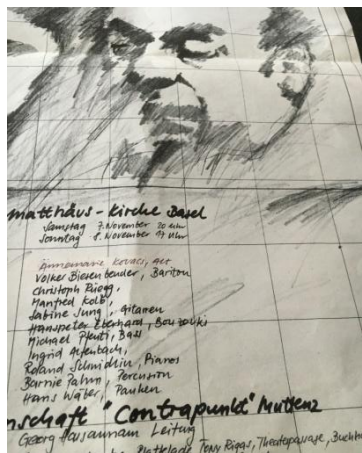 matthäus - Kirche Basel
Samstag 7. November 20 Uhr
Sonntag 8. November 17 Uhr
Annemarie Kovacs, Alt
Volker Bierenbender, Bariton
Christoph Rüegg,
Manfred Kolb,
Sabine Jung, Gitarren
Hanspeter Eberhard, Bouzouki
Michael Pfeuti, Bass
Ingrid
Roland Schmidlin, Pianos
Barnie Palm, Percusion
Hans Wäber, Pauken
nschaft "Contrapunkt" Muttenz
Georg Leitung
Plattelade Tony Riggs, Theaterpassage,